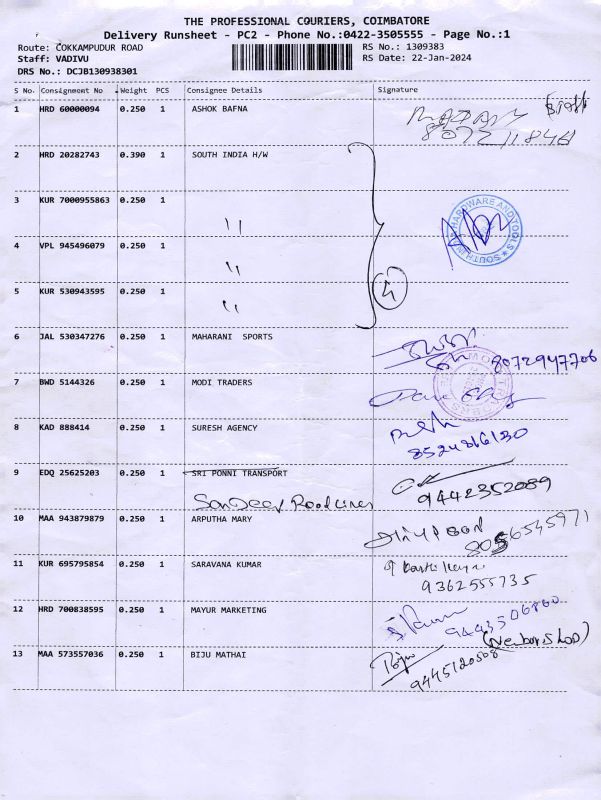 THE PROFESSIONAL COURIERS, COIMBATORE
Delivery Runsheet - PC2 - Phone No.:0422-3505555 - Page No.:1
Route: COKKAMPUDUR ROAD
Staff: VADIVU
DRS No.: DCJB130938301
RS No.: 1309383
RS Date: 22-Jan-2024
S No. Consignment No Weight PCS Consignee Details Signature
1 HRD 60000094 0.250 1 ASHOK BAFNA
2 HRD 20282743 0.390 1 SOUTH INDIA H/W
3 KUR 7000955863 0.250 1 "
4 VPL 945496079 0.250 1 "
5 KUR 530943595 0.250 1 "
4
HARDWARE AND TOOLS
6 JAL 530347276 0.250 1 MAHARANI SPORTS
8072947706
7 BWD 5144326 0.250 1 MODI TRADERS
8 KAD 888414 0.250 1 SURESH AGENCY
9 EDQ 25625203 0.250 1 SRI PONNI TRANSPORT
9442352089
Sandeep Roadlines
10 MAA 943879879 0.250 1 ARPUTHA MARY
8056545971
11 KUR 695795854 0.250 1 SARAVANA KUMAR
9362555735
12 HRD 700838595 0.250 1 MAYUR MARKETING
13 MAA 573557036 0.250 1 BIJU MATHAI
Biju
9445120508